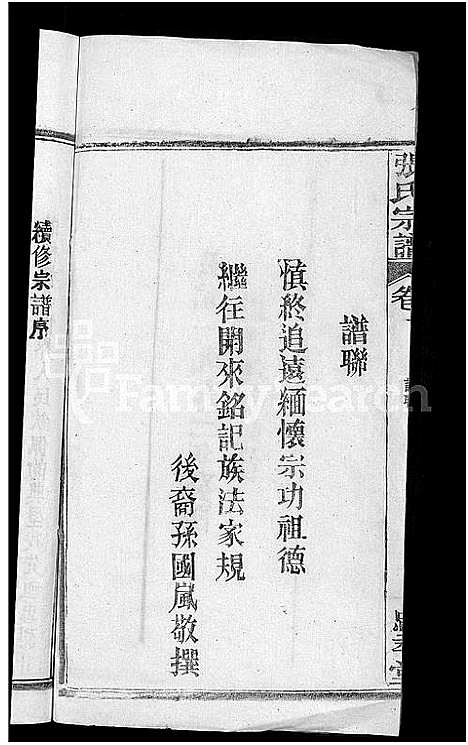 張氏宗譜
卷
譜聯
慎終追遠緬懷宗功祖德
繼往開來銘記族法家規
後裔孫國嵐敬撰
續修宗譜序
FamilySearch